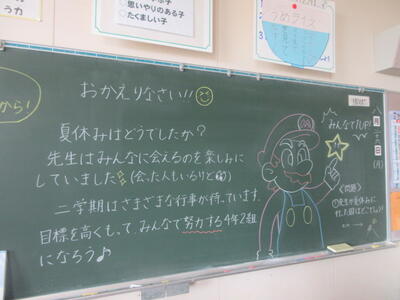 う力
・思いやりのある子
・たくましい子
から！
おかえりなさい!!
夏休みはどうでしたか？
先生はみんなに会えるのを楽しみに
していました (会った人もいるけど)
二学期はさまざまな行事が待っています。
目標を高くもって、みんなで努力する4年2組
になろう♪
みんなで1UP!
八月
日
(月)
〈問題〉
①先生が夏休みに